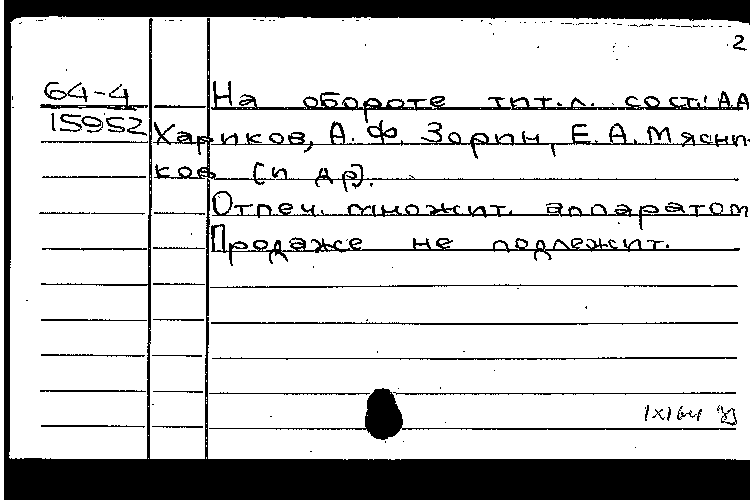 2
64-4 На обороте тит.л. сост.: А.А.
15952 Хариков, А. Ф. Зорин, Е. А. Мясни-
ков [и др].
Отпеч. множит. аппаратом
Продаже не подлежит.
1x164